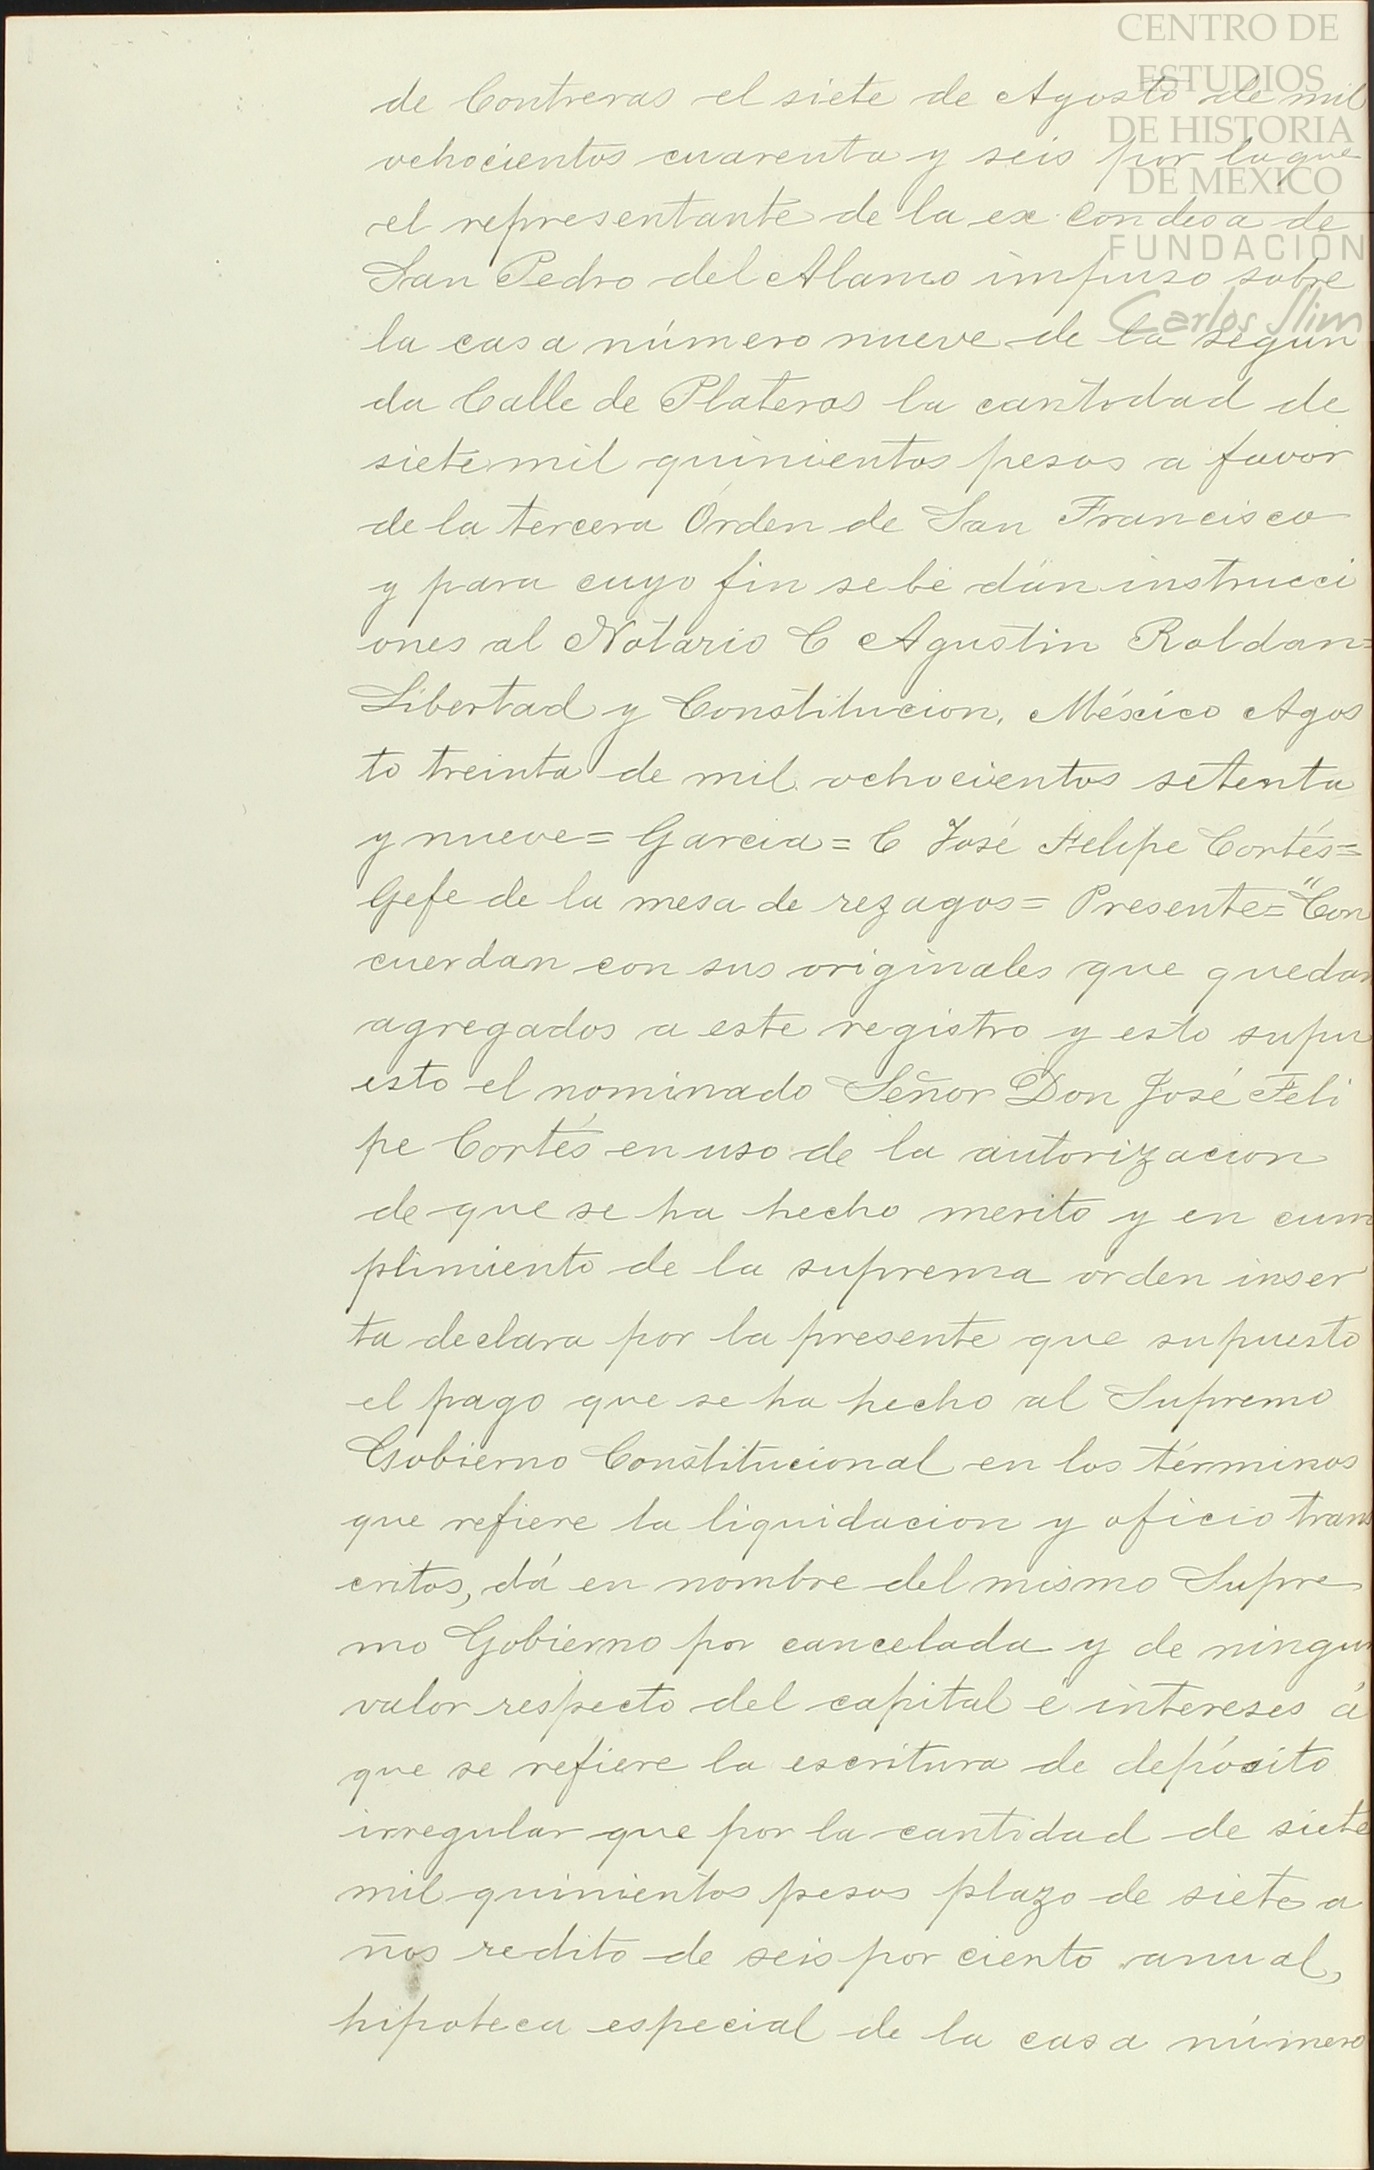 CENTRO DE
ESTUDIOS
DE HISTORIA
DE MEXICO
FUNDACIÓN
Carlos Slim
de Contreras el siete de Agosto de mil
ochocientos cuarenta y seis por la que
el representante de la ex Condesa de
San Pedro del Alamo impuso sobre
la casa número nueve de la segun
da Calle de Plateros la cantidad de
siete mil quinientos pesos a favor
de la tercera Orden de San Francisco
y para cuyo fin se le dán instrucci
ones al Notario C Agustin Roldan=
Libertad y Constitucion, México Agos
to treinta de mil ochocientos setenta
y nueve= Garcia= C José Felipe Cortés=
Gefe de la mesa de rezagos= Presente="Con
cuerdan con sus originales que quedan
agregados a este registro y esto supu
esto el nominado Señor Don José Feli
pe Cortés en uso de la autorizacion
de que se ha hecho merito y en cum
plimiento de la suprema orden inser
ta declara por la presente que supuesto
el pago que se ha hecho al Supremo
Gobierno Constitucional en los términos
que refiere la liquidacion y oficio trans
critos, dá en nombre del mismo Supre
mo Gobierno por cancelada y de ningun
valor respecto del capital é intereses á
que se refiere la escritura de depósito
irregular que por la cantidad de siete
mil quinientos pesos plazo de siete a
ños redito de seis por ciento anual,
hipoteca especial de la casa número